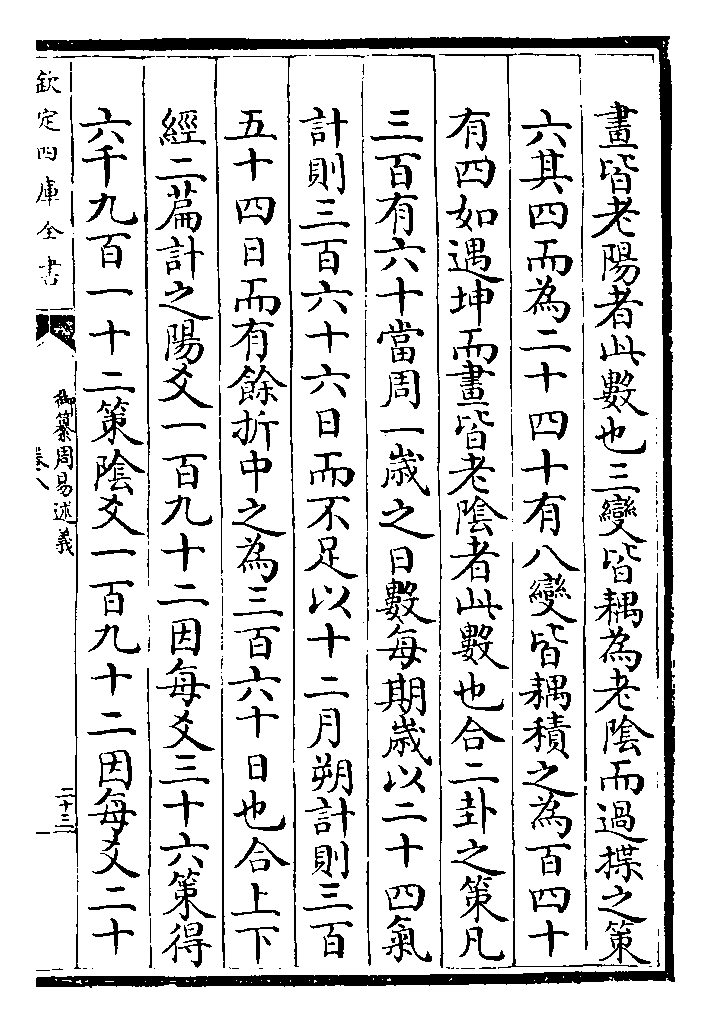 畫皆老陽者此數也三變皆耦為老陰而過揲之策
六其四而為二十四十有八變皆耦積之為百四十
有四如遇坤而畫皆老陰者此數也合二卦之策凡
三百有六十當周一歲之日數每期歲以二十四氣
計則三百六十六日而不足以十二月朔計則三百
五十四日而有餘折中之為三百六十日也合上下
經二萹計之陽爻一百九十二因每爻三十六策得
六千九百一十二策陰爻一百九十二因每爻二十
欽定四庫全書
御纂周易述義
卷八
二十三